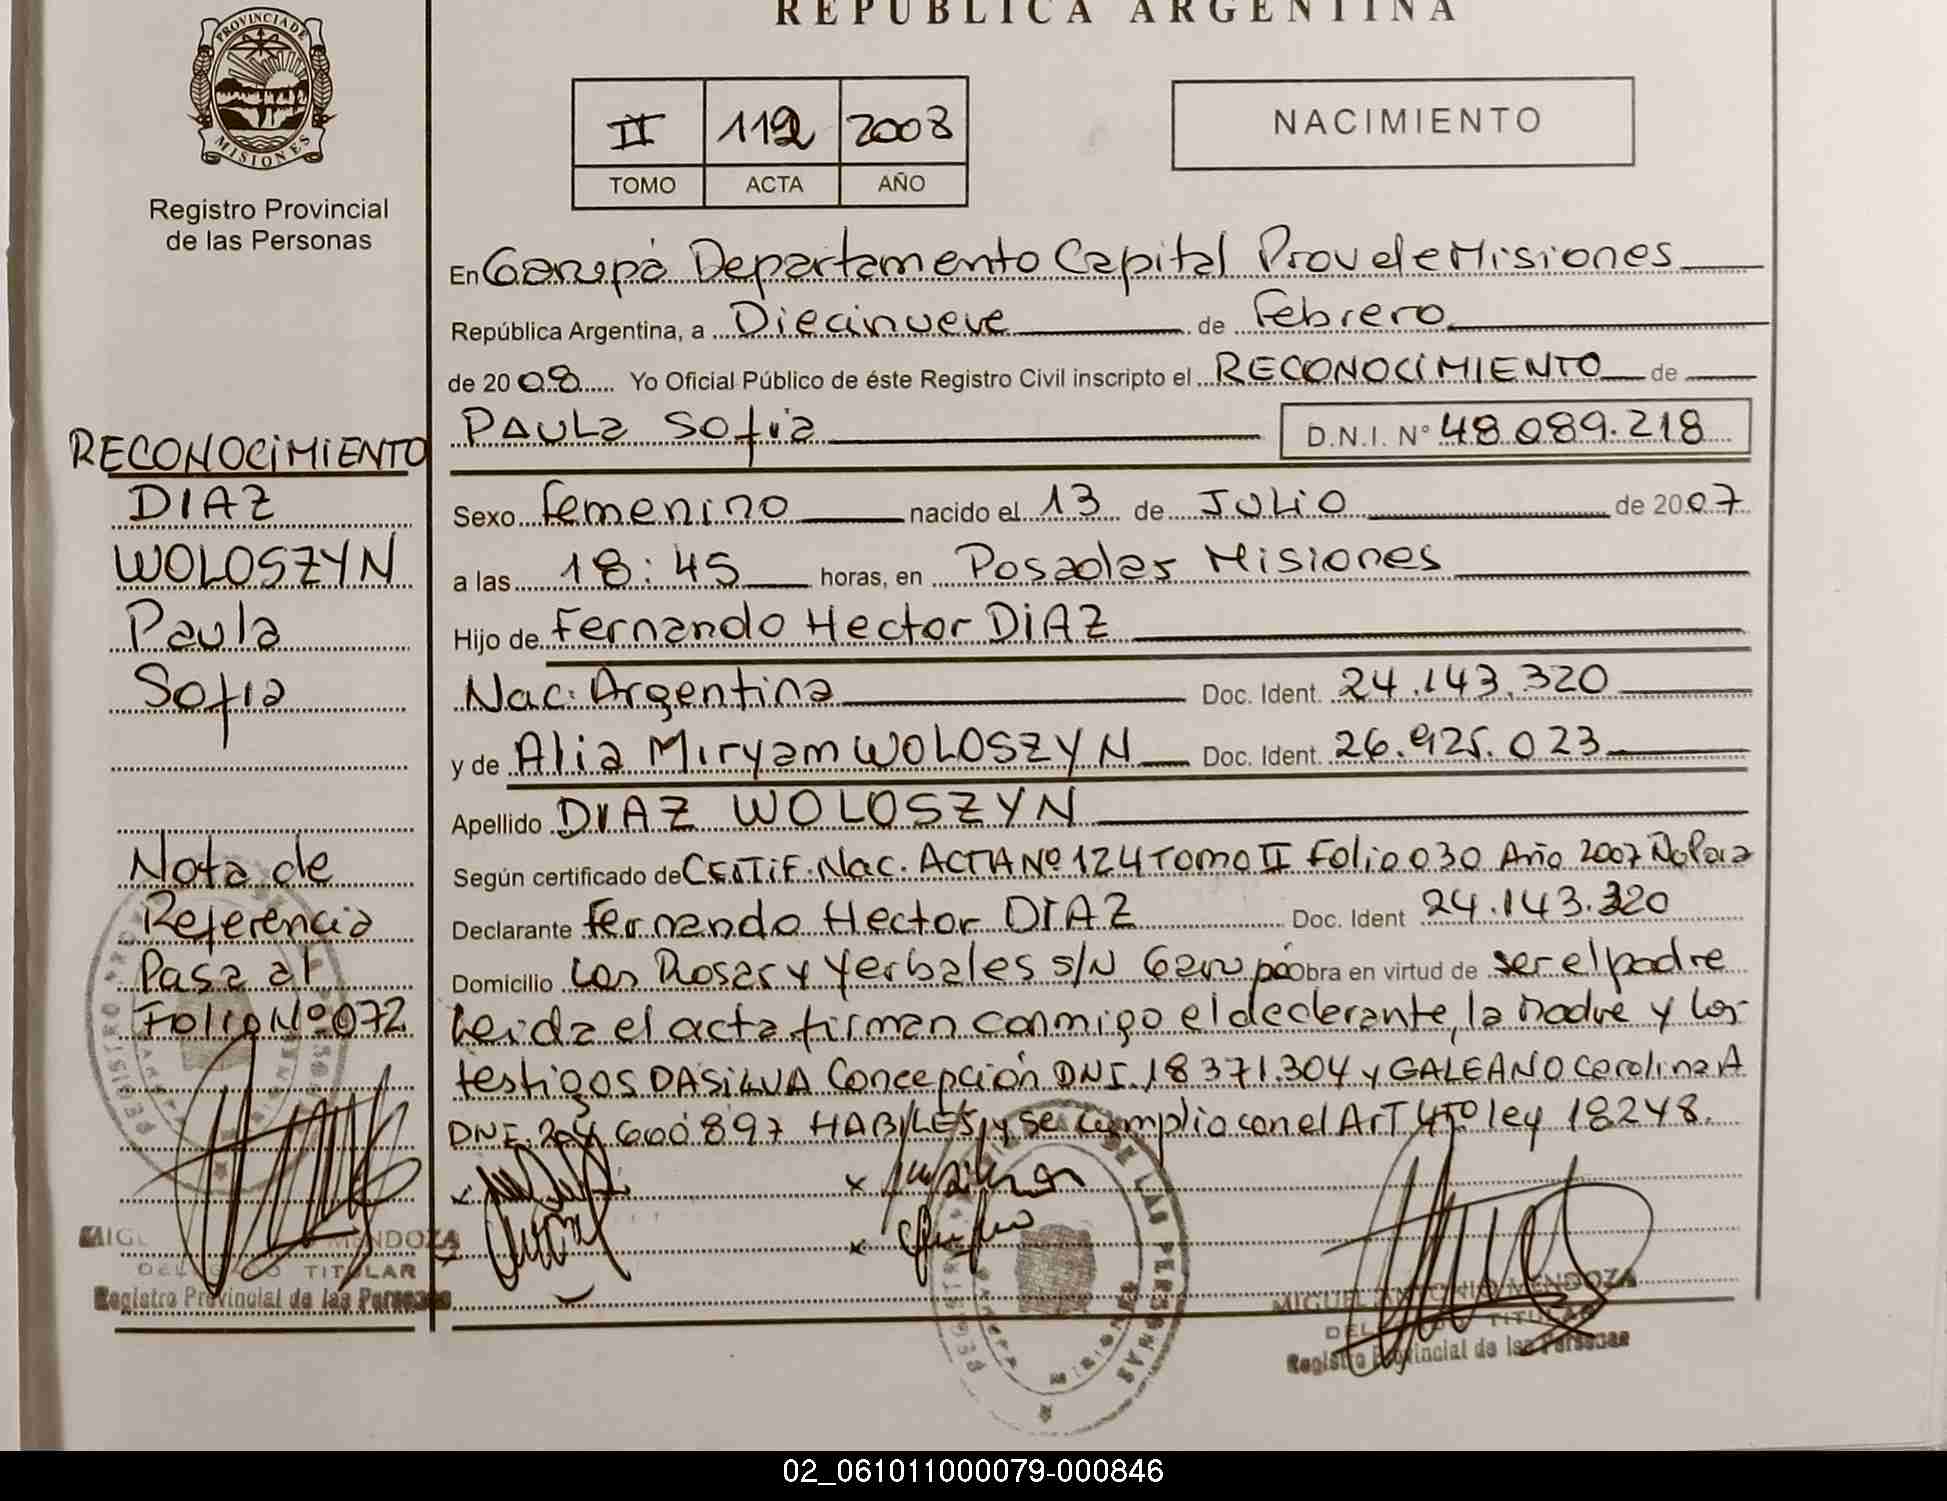 REPUBLICA ARGENTINA
PROVINCIA DE
MISIONES
Registro Provincial
de las Personas
II 112 2008
TOMO ACTA AÑO
NACIMIENTO
En Garupá Departamento Capital Prov de Misiones
República Argentina, a Diecinueve de Febrero
de 2008 Yo Oficial Público de éste Registro Civil inscripto el RECONOCIMIENTO de
PAULA Sofia D.N.I. N° 48.089.218
Sexo femenino nacido el 13 de JULIO de 2007
a las 18:45 horas, en Posadas Misiones
Hijo de Fernando Hector DIAZ
Nac: Argentina Doc. Ident. 24.143.320
y de Alia Miryam WOLOSZYN Doc. Ident. 26.925.023
Apellido DIAZ WOLOSZYN
Según certificado de CERTIF. Nac. ACTA Nº 124 Tomo II Folio 030 Año 2007
Declarante Fernando Hector DIAZ Doc. Ident 24.143.320
Domicilio Las Rosas y Yerbales s/N Garupá obra en virtud de ser el padre
Leida el acta firman conmigo el declarante, la madre y los
testigos DASILVA Concepción DNI. 18 371.304 y GALEANO Carolina A
DNI. 600 897 HABILES y se cumplio con el ArT ley 18248.
RECONOCIMIENTO
DIAZ
WOLOSZYN
Paula
Sofia
Nota de
Referencia
Pasa al
Folio Nº 072
MENDOZA
DELEGADO TITULAR
Registro Provincial de las Personas
MIGUEL ANTONIO MENDOZA
DELEGADO TITULAR
Registro Provincial de las Personas
02_061011000079-000846